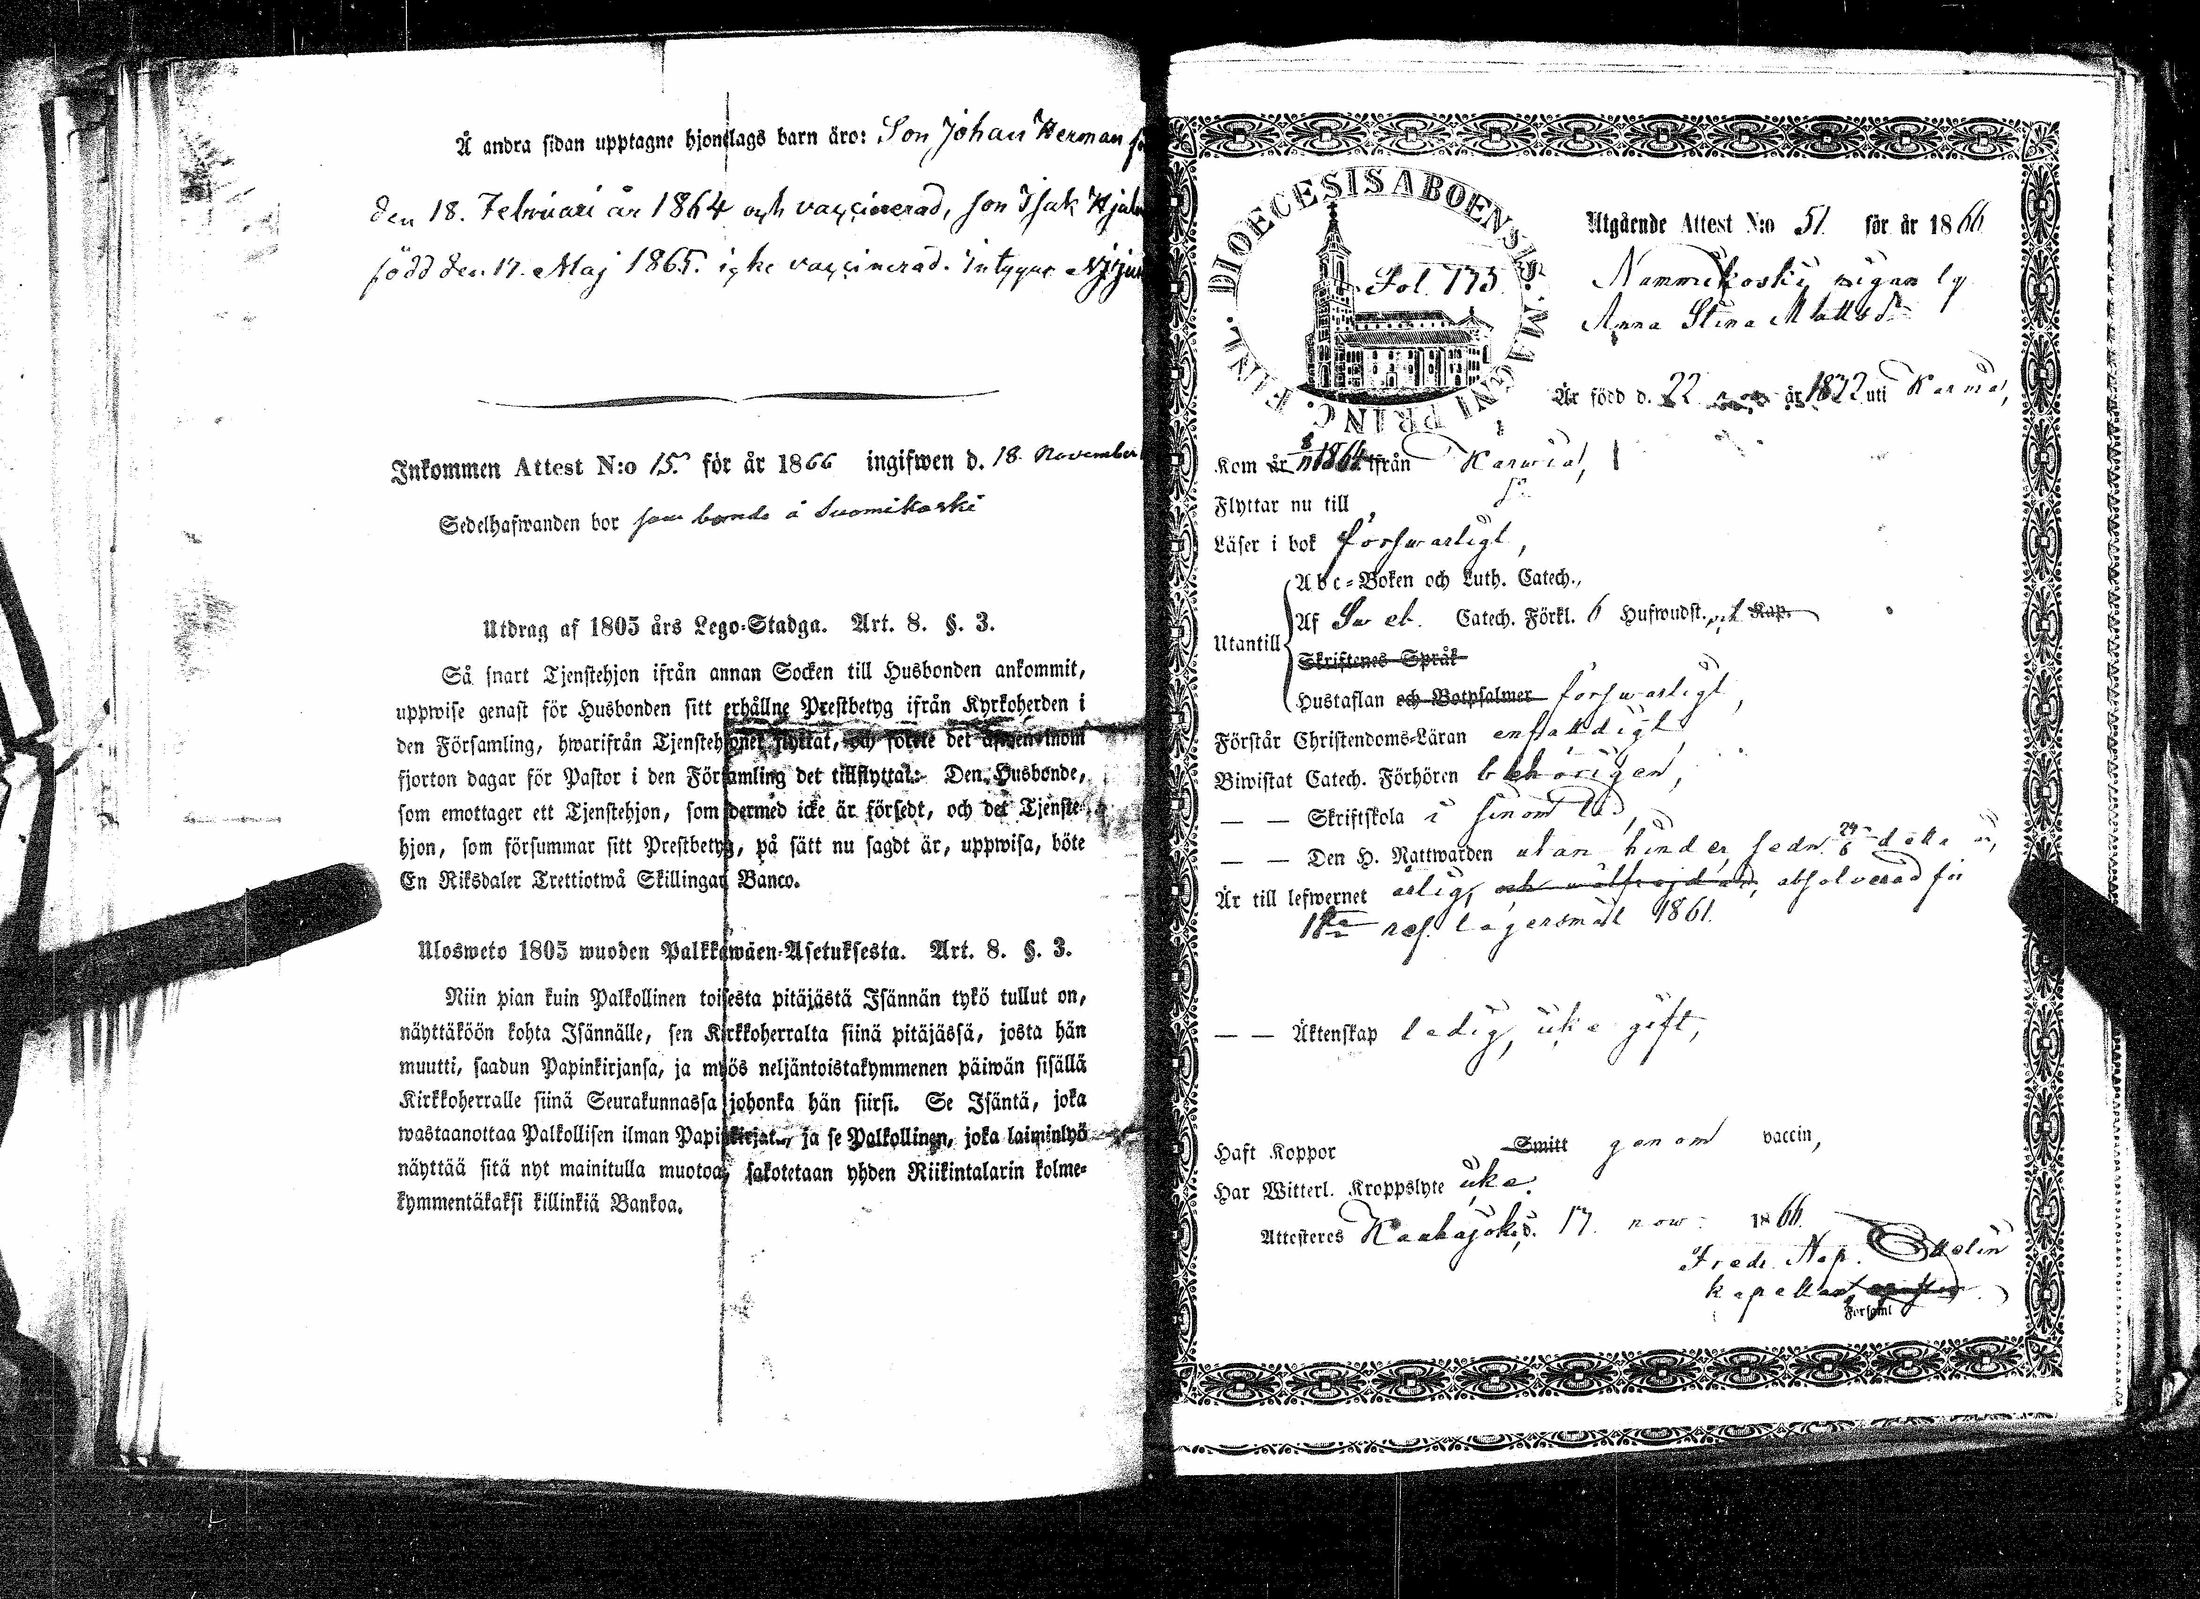 Å andra sidan upptagne hjonelags barn äro: Son Johan Herman
den 18. Februari år 1864 och vaccinerad, son Isak
född den 17. Maj 1865. icke vaccinerad. intygar
Inkommen Attest N:o 15. för år 1866 ingifwen d. 18 November
Sedelhafwanden bor som bonde å Suomikoski
Utdrag af 1805 års Lego-Stadga. Art. 8. §. 3.
Så snart Tjenstehjon ifrån annan Socken till Husbonden ankommit,
uppwise genast för Husbonden sitt erhållne Prestbetyg ifrån Kyrkoherden i
den Församling, hwarifrån Tjenstehjonet flyttat, och förete det äfwen inom
fjorton dagar för Pastor i den Församling det tillflyttat: Den Husbonde,
som emottager ett Tjenstehjon, som dermed icke är försedt, och det Tjenste-
hjon, som försummar sitt Prestbetyg, på sätt nu sagdt är, uppwisa, böte
En Riksdaler Trettiotwå Skillingar Banco.
Ulosweto 1805 wuoden Palkkawäen-Asetuksesta. Art. 8. §. 3.
Niin pian kuin Palkollinen toisesta pitäjästä Isännän tykö tullut on,
näyttäköön kohta Isännälle, sen Kirkkoherralta siinä pitäjässä, josta hän
muutti, saadun Papinkirjansa, ja myös neljäntoistakymmenen päiwän sisällä
Kirkkoherralle siinä Seurakunnassa johonka hän siirsi. Se Isäntä, joka
wastaanottaa Palkollisen ilman Papinkirjat., ja se Palkollinen, joka laiminlyö
näyttää sitä nyt mainitulla muotoa, sakotetaan yhden Riikintalarin kolme-
kymmentäkaksi killinkiä Bankoa.
DIOECESIS ABOENSIS. MAGNI PRINC. FINL.
Fol. 173.
Utgående Attest N:o 51. för år 1866
pigan
Anna Stina Mattsd:r
Är född d. 22 nov år 1822 uti Karvia,
Kom år 1864 ifrån Karvia,
Flyttar nu till
Läser i bok förswarligt,
Abc-Boken och Luth. Catech.,
Utantill Af Sveb. Catech. Förkl. 6 Hufwudst. och Kap.
Skriftenes Språk
Hustaflan och Botpsalmer förswarligt,
Förstår Christendoms-Läran enfaldigt,
Biwistat Catech. Förhören behörigen,
— — Skriftskola i sinom tid,
— — Den H. Nattwarden utan hinder, sedn. 24/6 detta år,
Är till lefwernet ärlig, och wälfrejdad, absolverad för
1sta resan lägersmål 1861.
— — Äktenskap ledig, icke gift,
Haft Koppor Smitt genom vaccin,
Har Witterl. Kroppslyte icke.
Attesteres Kauhajoki, d. 17. nov. 1866.
Fredr. Nap.
kapellan
Församl